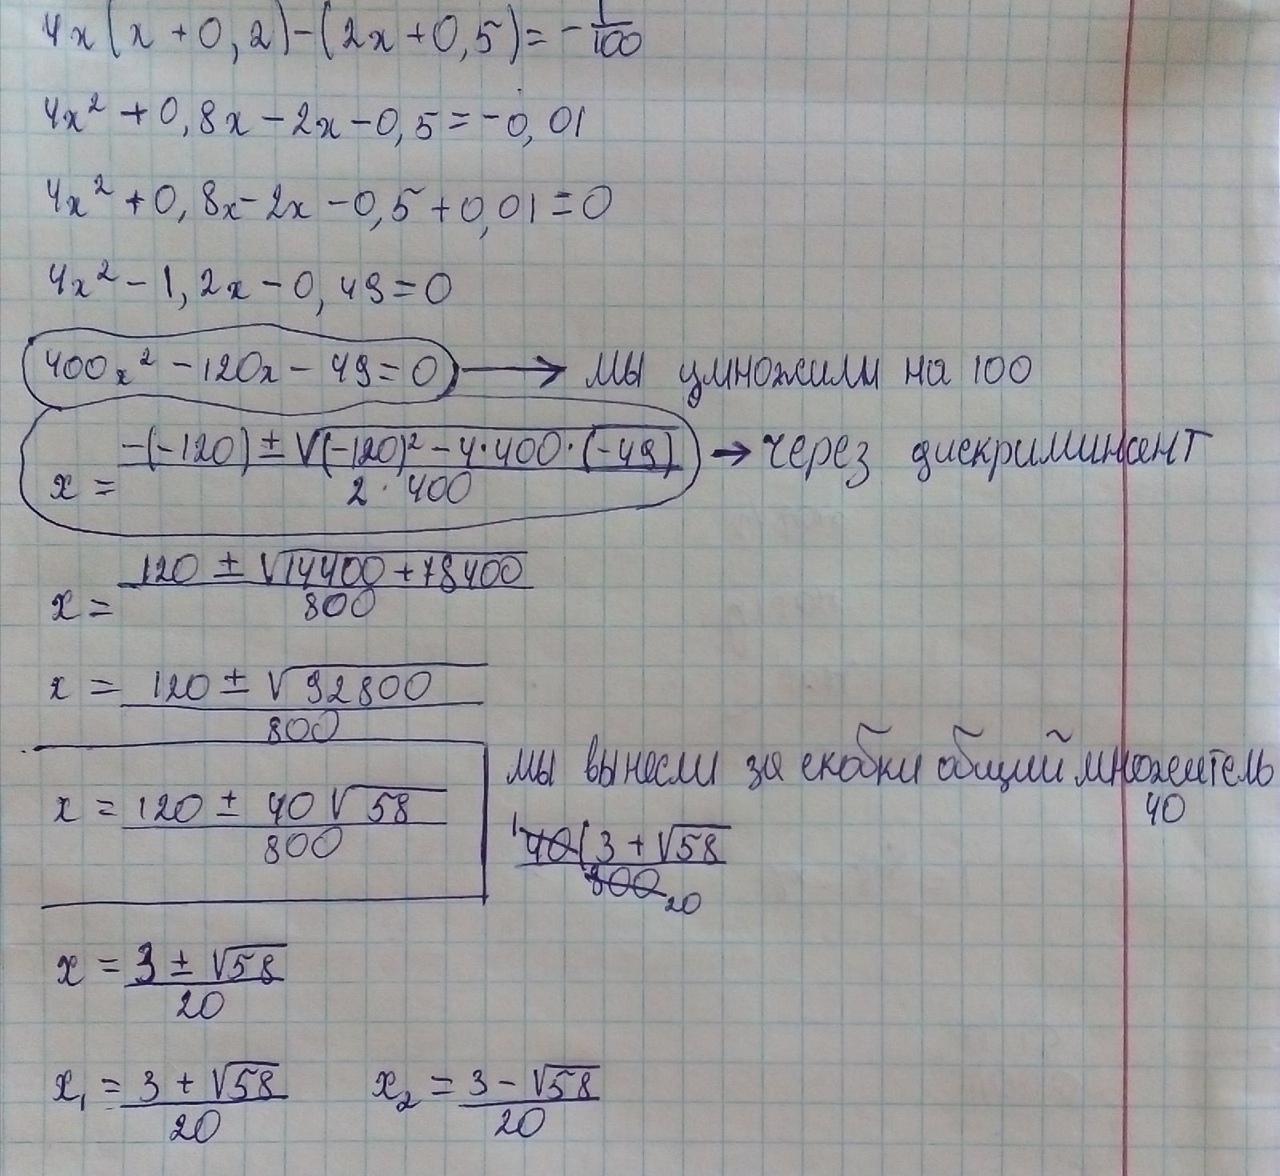 4x(x+0,2)-(2x+0,5)=-1/100
4x²+0,8x-2x-0,5=-0,01
4x²+0,8x-2x-0,5+0,01=0
4x²-1,2x-0,49=0
400x²-120x-49=0 → мы умножили на 100
x = (-(-120)±√((-120)²-4·400·(-49)))/(2·400) → через дискриминант
x = (120±√(14400+78400))/800
x = (120±√92800)/800
мы вынесли за скобки общий множитель 40
x = (120±40√58)/800
¹40(3+√58/800 20
x = (3±√58)/20
x₁ = (3+√58)/20 x₂ = (3-√58)/20